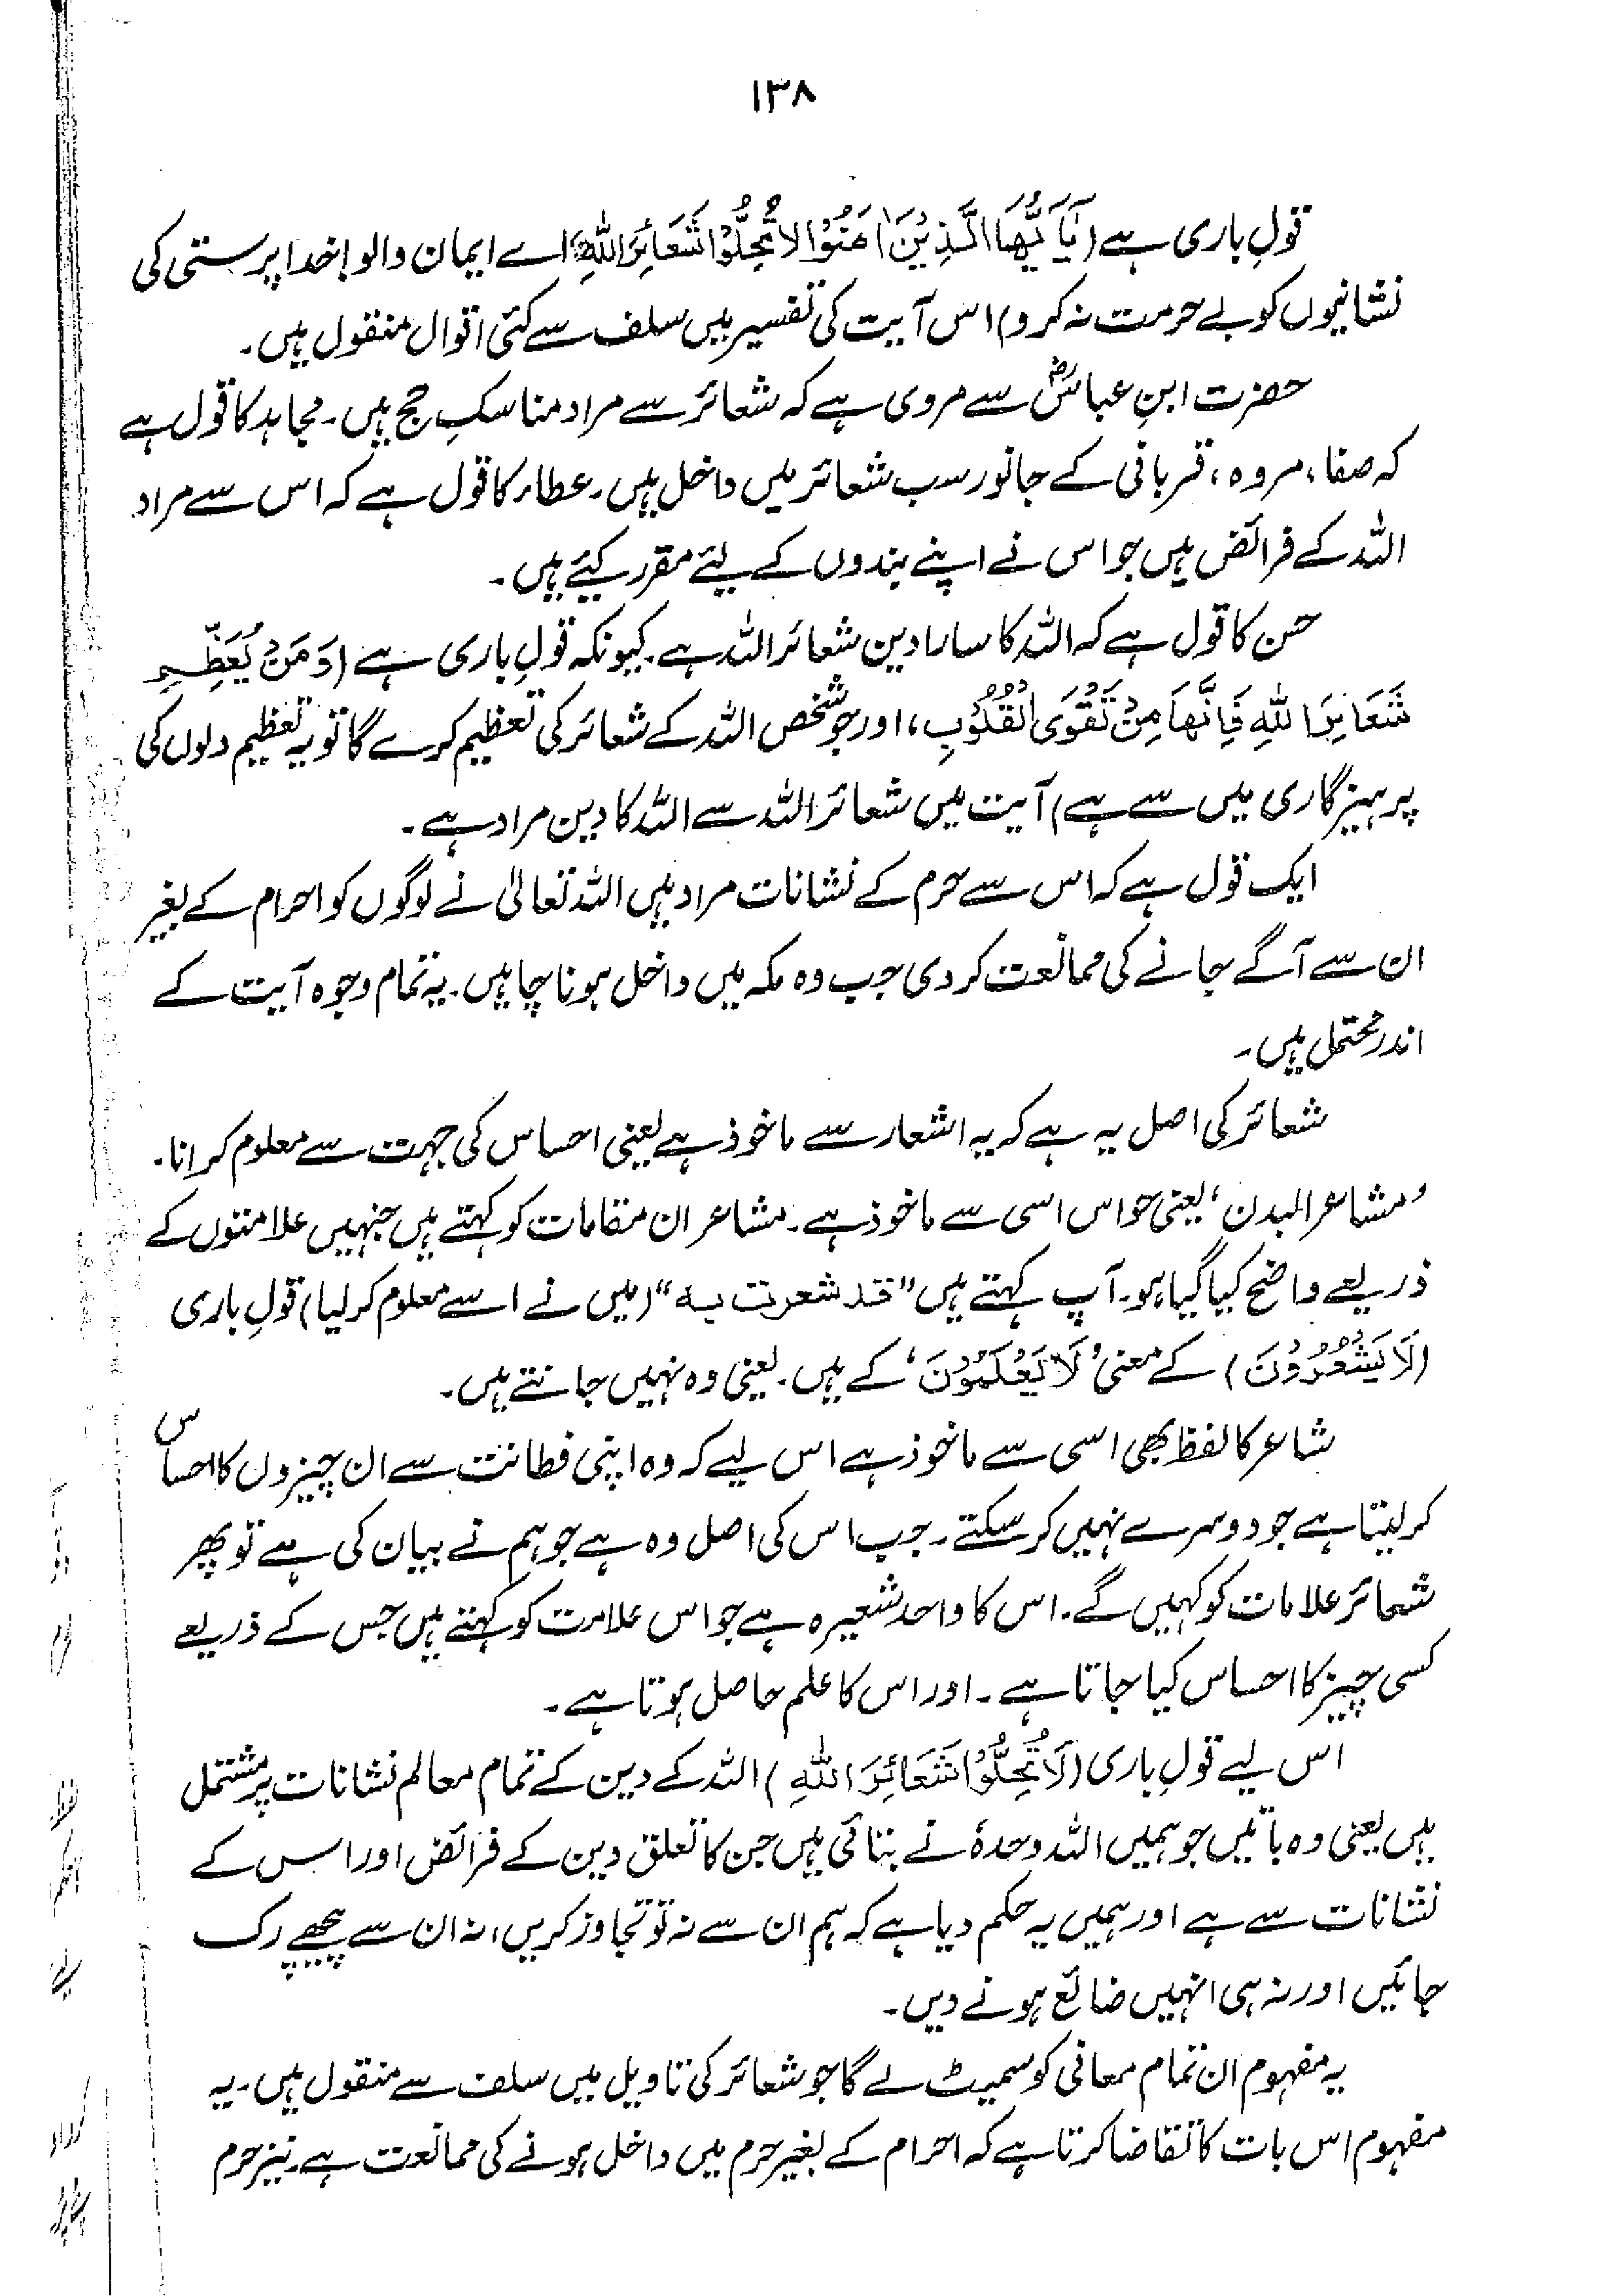 ۱۳۸
قولِ باری ہے (يَآ يُّهَا الَّذِيْنَ اٰمَنُوْا لَا تُحِلُّوْا شَعَآئِرَ اللّٰهِ، اے ایمان والو! خدا پرستی کی
نشانیوں کو بے حرمت نہ کرو) اس آیت کی تفسیر میں سلف سے کئی اقوال منقول ہیں۔
حضرت ابنِ عباسؓ سے مروی ہے کہ شعائر سے مراد مناسکِ حج ہیں۔ مجاہد کا قول ہے
کہ صفا، مروہ، قربانی کے جانور سب شعائر میں داخل ہیں۔ عطاء کا قول ہے کہ اس سے مراد
اللہ کے فرائض ہیں جو اس نے اپنے بندوں کے لیئے مقرر کیئے ہیں۔
حسن کا قول ہے کہ اللہ کا سارا دین شعائر اللہ ہے۔ کیونکہ قولِ باری ہے (وَ مَنْ يُّعَظِّمْ
شَعَائِرَ اللّٰهِ فَاِنَّهَا مِنْ تَقْوَى الْقُلُوْبِ، اور جو شخص اللہ کے شعائر کی تعظیم کرے گا تو یہ تعظیم دلوں کی
پرہیزگاری میں سے ہے) آیت میں شعائر اللہ سے اللہ کا دین مراد ہے۔
ایک قول ہے کہ اس سے حرم کے نشانات مراد ہیں اللہ تعالیٰ نے لوگوں کو احرام کے بغیر
ان سے آگے جانے کی ممانعت کر دی جب وہ مکہ میں داخل ہونا چاہیں۔ یہ تمام وجوہ آیت کے
اندر محتمل ہیں۔
شعائر کی اصل یہ ہے کہ یہ اشعار سے ماخوذ ہے یعنی احساس کی جہت سے معلوم کرانا۔
’مشاعر البدن‘ یعنی حواس اسی سے ماخوذ ہے۔ مشاعر ان مقامات کو کہتے ہیں جنہیں علامتوں کے
ذریعے واضح کیا گیا ہو۔ آپ کہتے ہیں ”قد شعرت به“ (میں نے اسے معلوم کر لیا) قولِ باری
(لَا يَشْعُرُوْنَ) کے معنی ’لَا يَعْلَمُوْنَ‘ کے ہیں۔ یعنی وہ نہیں جانتے ہیں۔
شاعر کا لفظ بھی اسی سے ماخوذ ہے اس لیے کہ وہ اپنی فطانت سے ان چیزوں کا احساس
کر لیتا ہے جو دوسرے نہیں کر سکتے۔ جب اس کی اصل وہ ہے جو ہم نے بیان کی ہے تو پھر
شعائر علامات کو کہیں گے۔ اس کا واحد شعیرہ ہے جو اس علامت کو کہتے ہیں جس کے ذریعے
کسی چیز کا احساس کیا جاتا ہے۔ اور اس کا علم حاصل ہوتا ہے۔
اس لیے قولِ باری (لَا تُحِلُّوْا شَعَائِرَ اللّٰهِ) اللہ کے دین کے تمام معالم نشانات پر مشتمل
ہیں یعنی وہ باتیں جو ہمیں اللہ وحدہٗ نے بتائی ہیں جن کا تعلق دین کے فرائض اور اس کے
نشانات سے ہے اور ہمیں یہ حکم دیا ہے کہ ہم ان سے نہ تو تجاوز کریں، نہ ان سے پیچھے رک
جائیں اور نہ ہی انہیں ضائع ہونے دیں۔
یہ مفہوم ان تمام معانی کو سمیٹ لے گا جو شعائر کی تاویل میں سلف سے منقول ہیں۔ یہ
مفہوم اس بات کا تقاضا کرتا ہے کہ احرام کے بغیر حرم میں داخل ہونے کی ممانعت ہے۔ نیز حرم